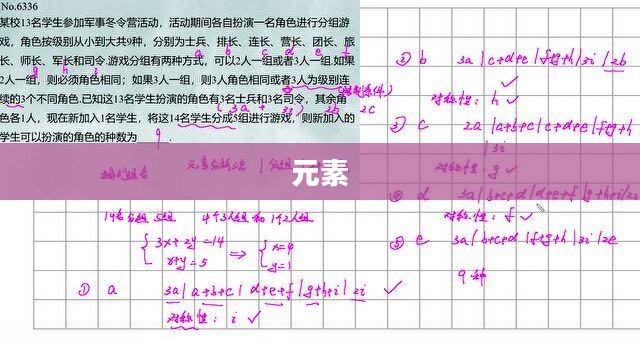 No.6336
某校13名学生参加军事冬令营活动，活动期间各自扮演一名角色进行分组游
戏，角色按级别从小到大共9种，分别为士兵、排长、连长、营长、团长、旅
长、师长、军长和司令.游戏分组有两种方式，可以2人一组或者3人一组.如果
2人一组，则必须角色相同；如果3人一组，则3人角色相同或者3人为级别连
续的3个不同角色.已知这13名学生扮演的角色有3名士兵和3名司令，其余角
色各1人，现在新加入1名学生，将这14名学生分成5组进行游戏，则新加入的
学生可以扮演的角色的种数为 9 .
元素
14名 分组 5组 4个3人组 和 1个2人组
3x+2y=14
x+y=5
⇒
x=4
y=1
① a 3a | a+b+c | d+e+f | g+h+i | 2i ✓
对称性：i ✓
② b 3a | c+d+e | f+g+h | 3i | 2b
✓
对称性：h ✓
③ c 2a | a+b+c | c+d+e | f+g+h
| 3i
对称性：g ✓
④ d 3a | b+c+d | d+e+f | g+h+i | 2i
对称性：f ✓
⑤ e 3a | b+c+d | f+g+h | 3i | 2e
9种